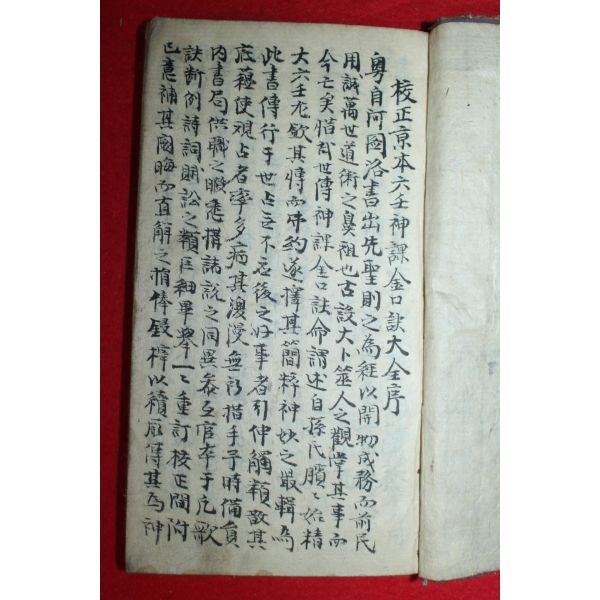 校正京本六壬神課金口訣大全序
粵自河圖洛書出先聖則之為經以開物成務而前民
用誠萬世道術之鼻祖也古設大卜筮人之觀掌其事而
今亡矣惜哉世傳神課金口訣命謂述自孫氏臏〻始精
大六壬尤欽其博而守約遂擇其簡粹神妙之最輯為
此書傳行于世占無不應後之好事者引伸觸類敷其
底蘊使觀占者率多病其漫漫無所措手予時備員
內書局供職之暇悉搆諸說之同異參互官卒于凡歌
訣斷例詩詞賦訟之類巨細畢舉一〻重訂校正間附
已意補其闕晦而直解之捐俸鋟梓以續厥傳其為神